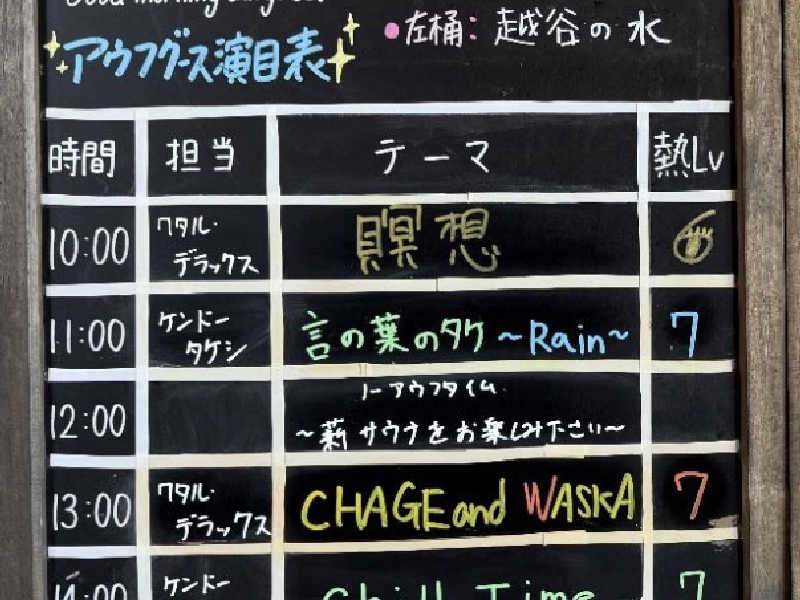 Good morning
●左桶: 越谷の水
アウフグース演目表
時間 担当 テーマ 熱Lv
10:00 ワタル・デラックス 瞑想
11:00 ケンドータケシ 言の葉のタケ ~Rain~ 7
12:00 ノーアウフタイム
~薪サウナをお楽しみ下さい~
13:00 ワタル・デラックス CHAGE and WASKA 7
14:00 ケンドー Chill Time 7